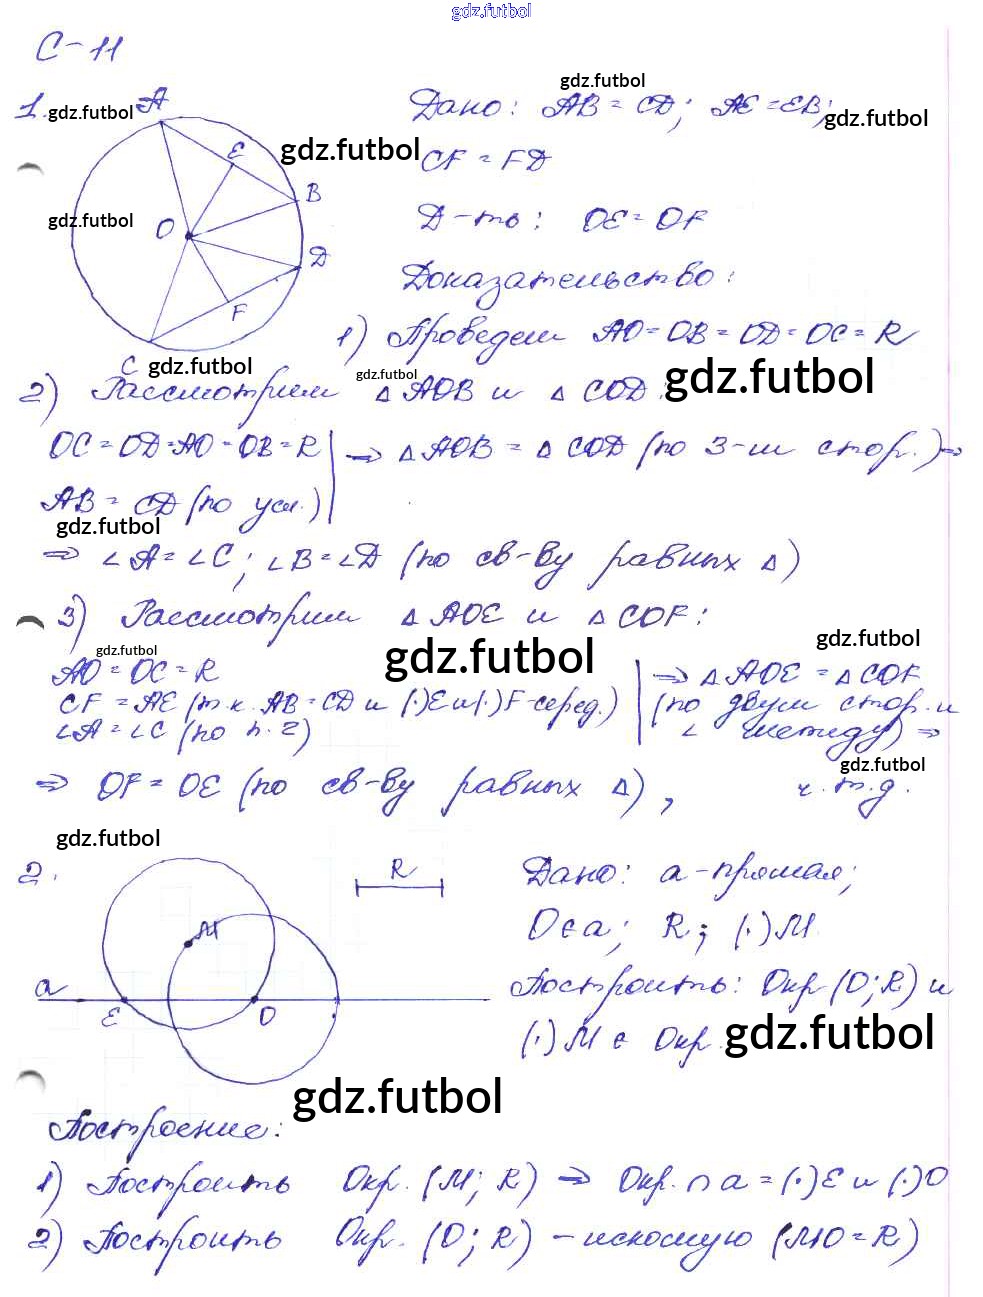 gdz.futbol
С-11
1. gdz.futbol A
gdz.futbol
Дано: AB = CD; AE = EB;
gdz.futbol
E gdz.futbol CF = FD
B
gdz.futbol O Д-ть: OE = OF
D
Доказательство:
F
1) Проведем AO = OB = OD = OC = R
C gdz.futbol gdz.futbol gdz.futbol
2) Рассмотрим △ AOB и △ COD:
OC = OD = AO = OB = R | => △ AOB = △ COD (по 3-м стор.) =>
AB = CD (по усл.)
gdz.futbol
=> ∠A = ∠C; ∠B = ∠D (по св-ву равных △)
3) Рассмотрим △ AOE и △ COF:
gdz.futbol gdz.futbol gdz.futbol
AO = OC = R | => △ AOE = △ COF
CF = AE (т.к. AB = CD и (·)E и (·)F-серед.) | (по двум стор. и
∠A = ∠C (по п. 2) | ∠ между) =>
gdz.futbol
=> OF = OE (по св-ву равных △), ч.т.д.
gdz.futbol
2. R Дано: a - прямая;
M O∈a; R; (·)M.
a E O Построить: Окр (O; R) и
(·) M ∈ Окр. gdz.futbol
gdz.futbol
Построение:
1) Построить Окр. (M; R) => Окр. ∩ a = (·)E и (·)O
2) Построить Окр. (O; R) - искомую (MO = R)